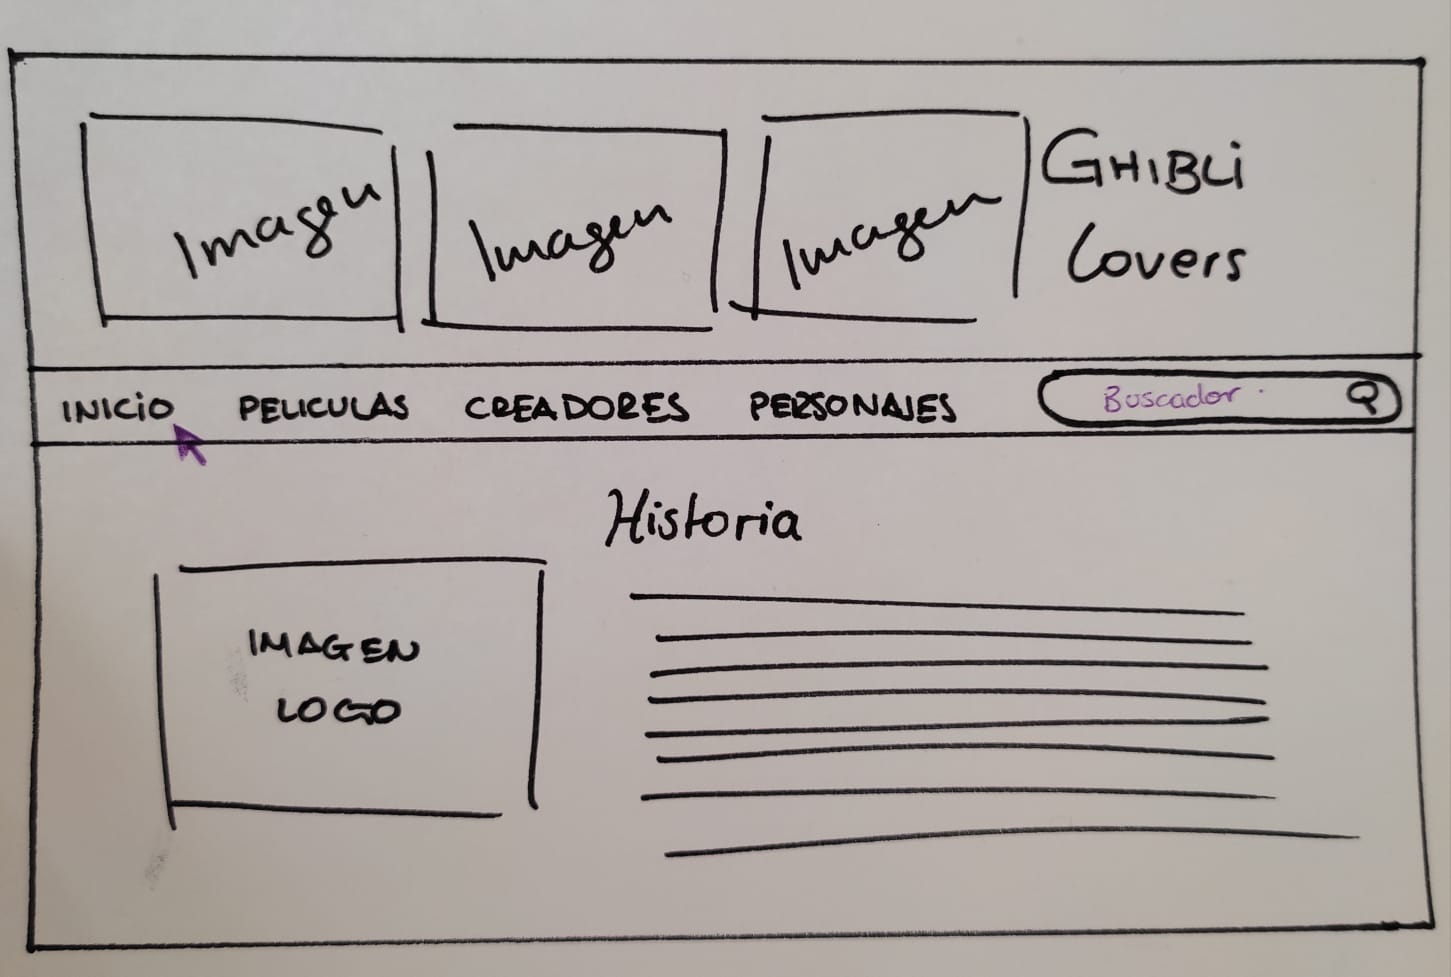 Imagen
Imagen
Imagen
GHIBLi
Lovers
INICiO PELICULAS CREADORES PERSONAJES Buscador
Historia
IMAGEN
LOGO